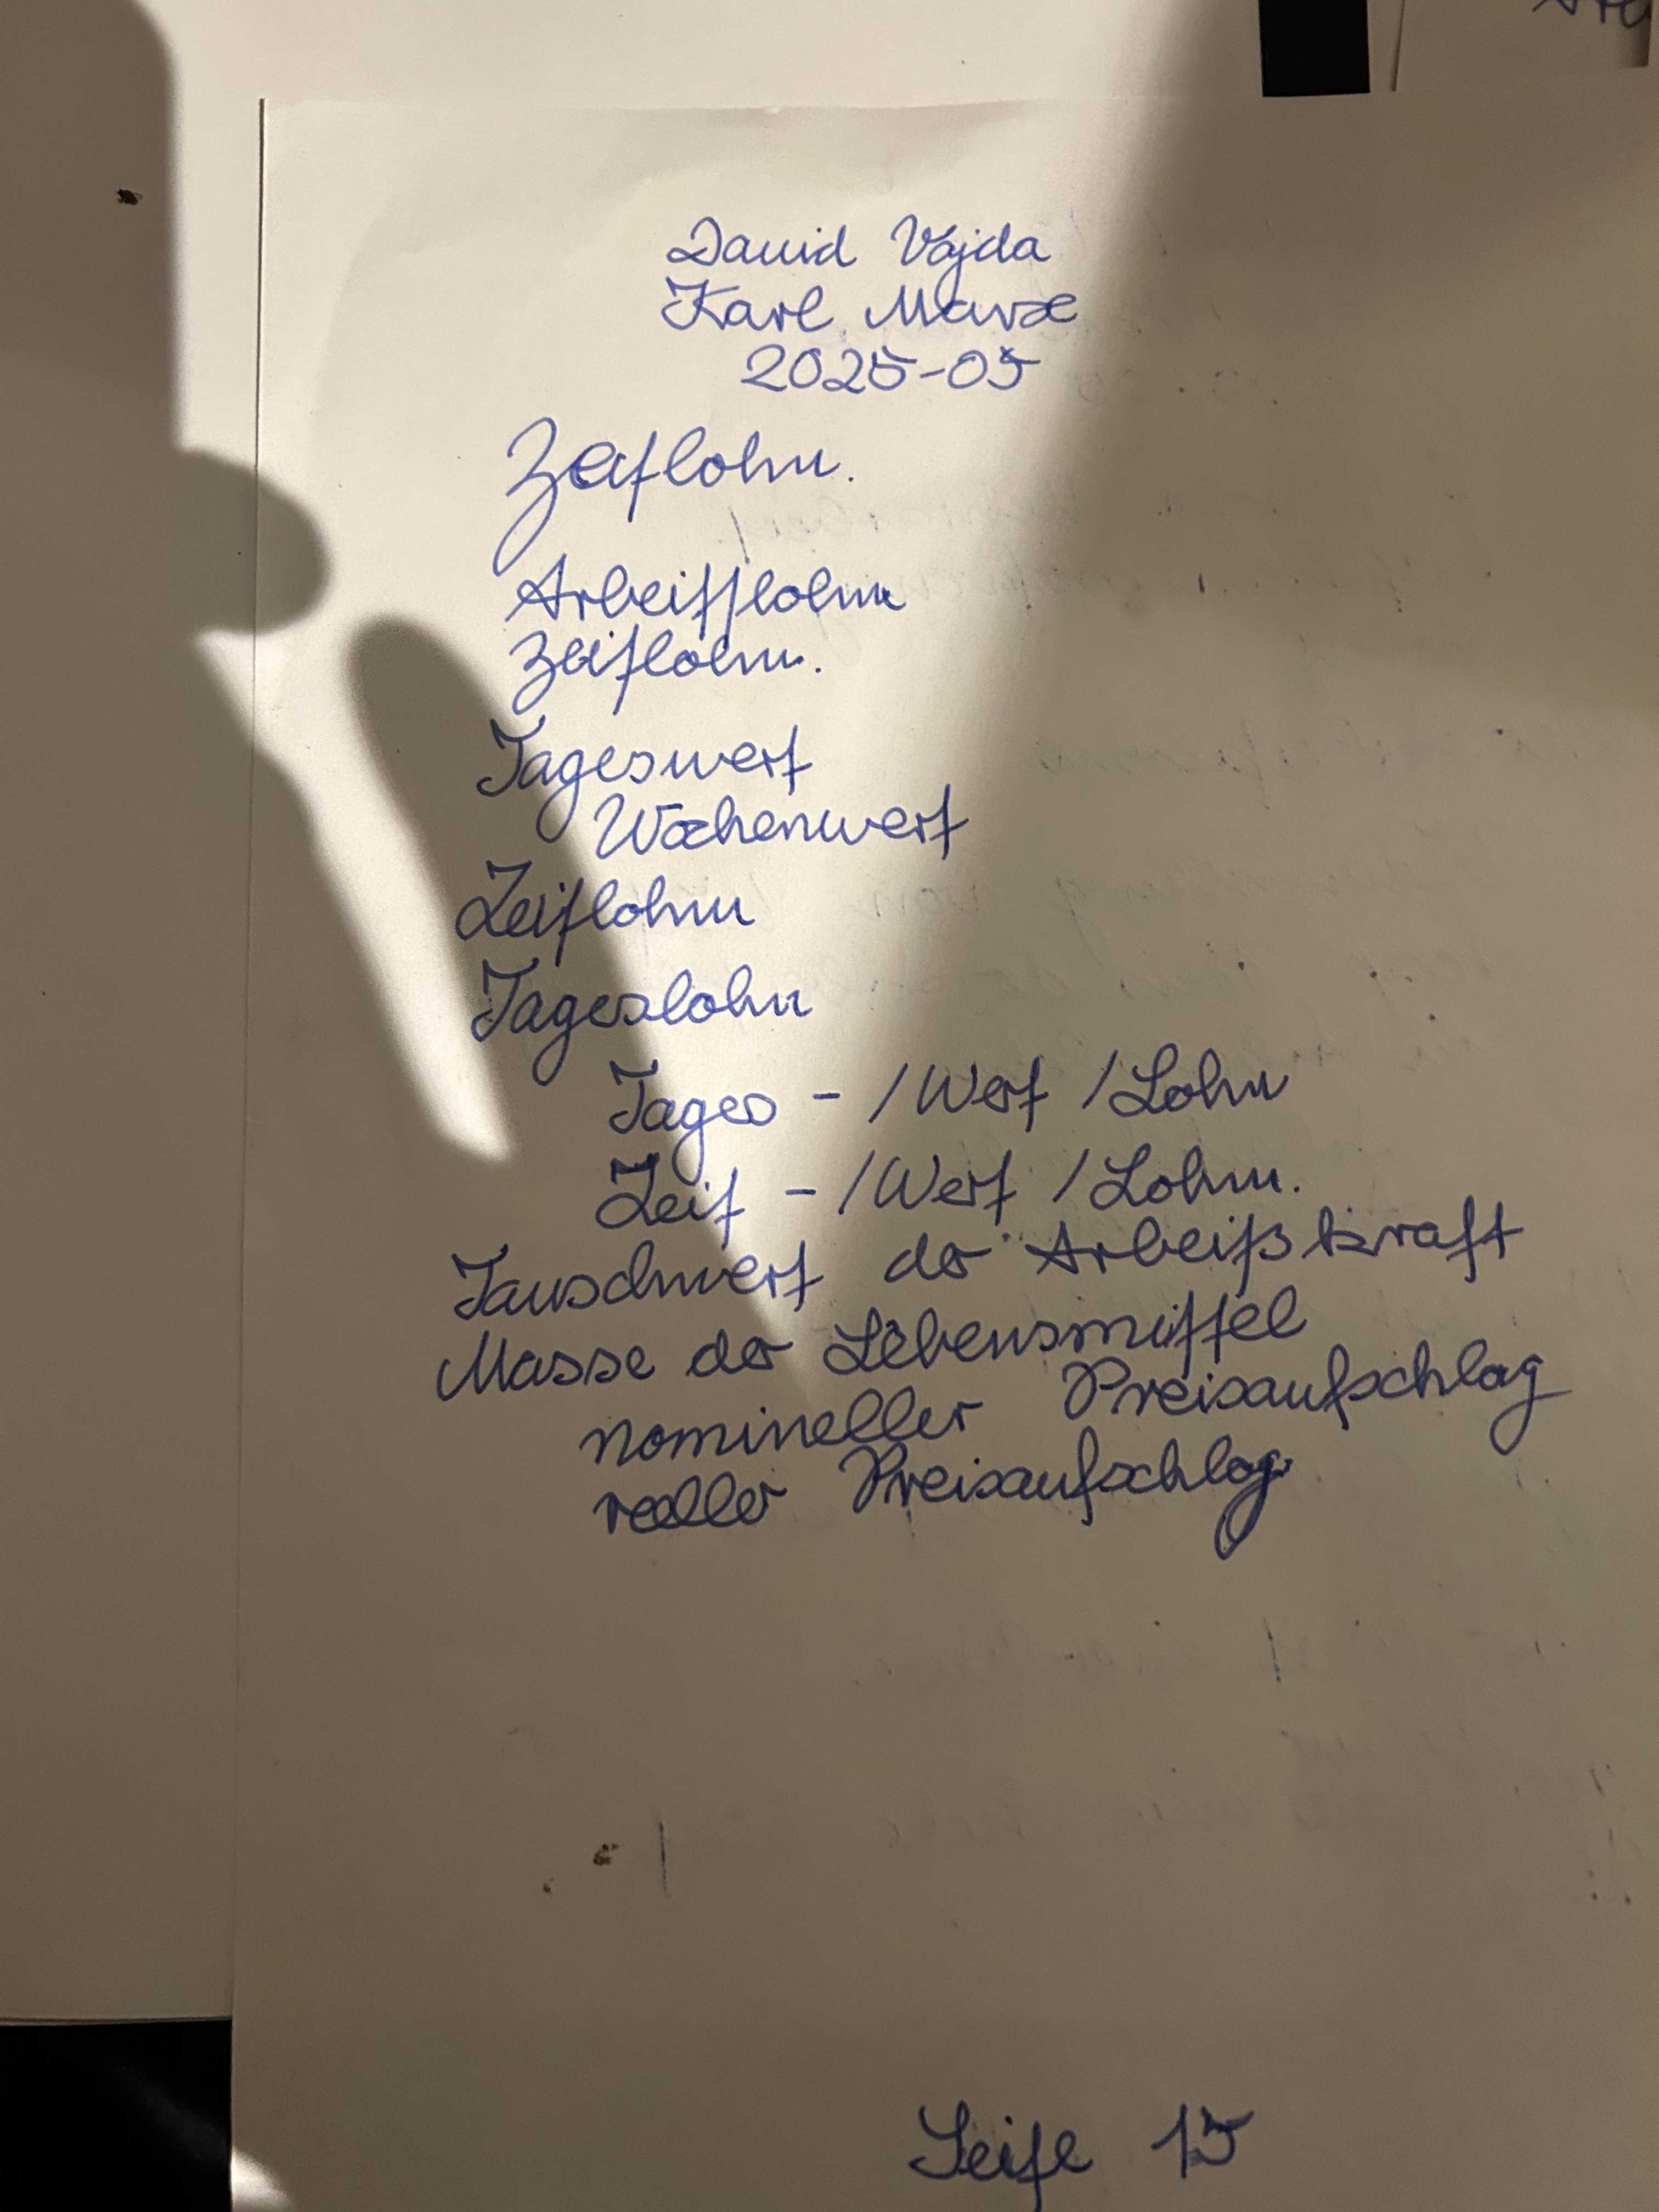 David Vajda
Karl Marx
2025-05
Zeitlohn.
Arbeitslohn
Zeitlohn.
Tageswert
Wochenwert
Zeitlohn
Tageslohn
Tages - /Wert /Lohn
Zeit - /Wert /Lohn.
Tauschwert der Arbeitskraft
Masse der Lebensmittel
nomineller Preisaufschlag
reeller Preisaufschlag
Seite 15